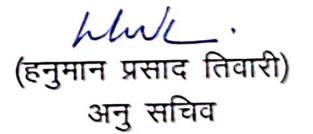 (हनुमान प्रसाद तिवारी)
अनु सचिव